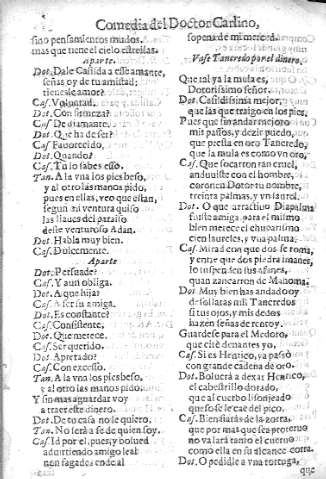 Comedia del Doctor Carlino,
sino pensamientos mudos.
mas que tiene el cielo estrellas.
aparte.
Dot. Dale Casilda a esse amante,
señas oy de tu amistad;
tienesle amor?
Cas. Voluntad.
Dot. Con firmeza?
Cas. De diamante.
Dot. Que ha de ser?
Cas. Fauorecido.
Dot. Quando?
Cas. Tu lo sabes esso.
Tan. A la vna los pies beso,
y al otro las manos pido,
pues en ellas, veo que estan,
segun mi ventura quiso
las llaues del paraiso
deste venturoso Adan.
Dot. Habla muy bien.
Cas. Dulcemente.
Aparte
Dot. Persuade?
Cas. Y aun obliga.
Dot. A que hija?
Cas. A ser su amiga.
Dot. Es constante?
Cas. Consistente.
Dot. Que merece.
Cas. Ser querido.
Dot. Apretado?
Cas. Con excesso.
Tan. A la vna los pies beso,
y al otro las manos pido.
Y sin mas aguardar voy
a traer este dinero.
Dot. De tu casa no le quiero.
Tan. No será a de quien soy.
Cas. Id por el, pues, y bolued
aduirtiendo amigo leal
no
sopena de mi merced.
Vase Tancredo por el dinero.
Que tal ya la mula es,
Dotorissimo señor.
Dot. Casildissima mejor,
que las que traigo en los pies.
Pues que sin andar mejoro
mis passos, y dezir puedo,
que presta en oro Tancredo,
que la mula es como vn oro,
Cas. Que socarron tan cruel,
anduuiste con el hombre,
coronen Dotor tu nombre,
treinta palmas, y vn laurel.
Dot. O que
fuiste amiga para el mismo
bien merece el
cien laureles, y vna palma.
Cas. Mirad con que dos se toma,
y entre que dos piedra imanes,
lo suspenden sus afanes,
quan zancarron de Mahoma.
Dot. Muy bien has andado oy
desollaras mil Tancredos
si tus ojos, y mis dedos
hazen señas de rentoy.
Guardese para el Medoro,
que esse
Cas. Si es ya passó
con grande cadena de oro.
Dot. Boluerá a dexar
el cabestrillo dorado,
que al cuerbo lisonjeado
que so se cae del pico.
Cas. Biensarás de la zorra,
que por mas que sea
no vala tanto el cuerno
como ella en su alcance corra.
Dot. O pedidle a vna tortuga,
que